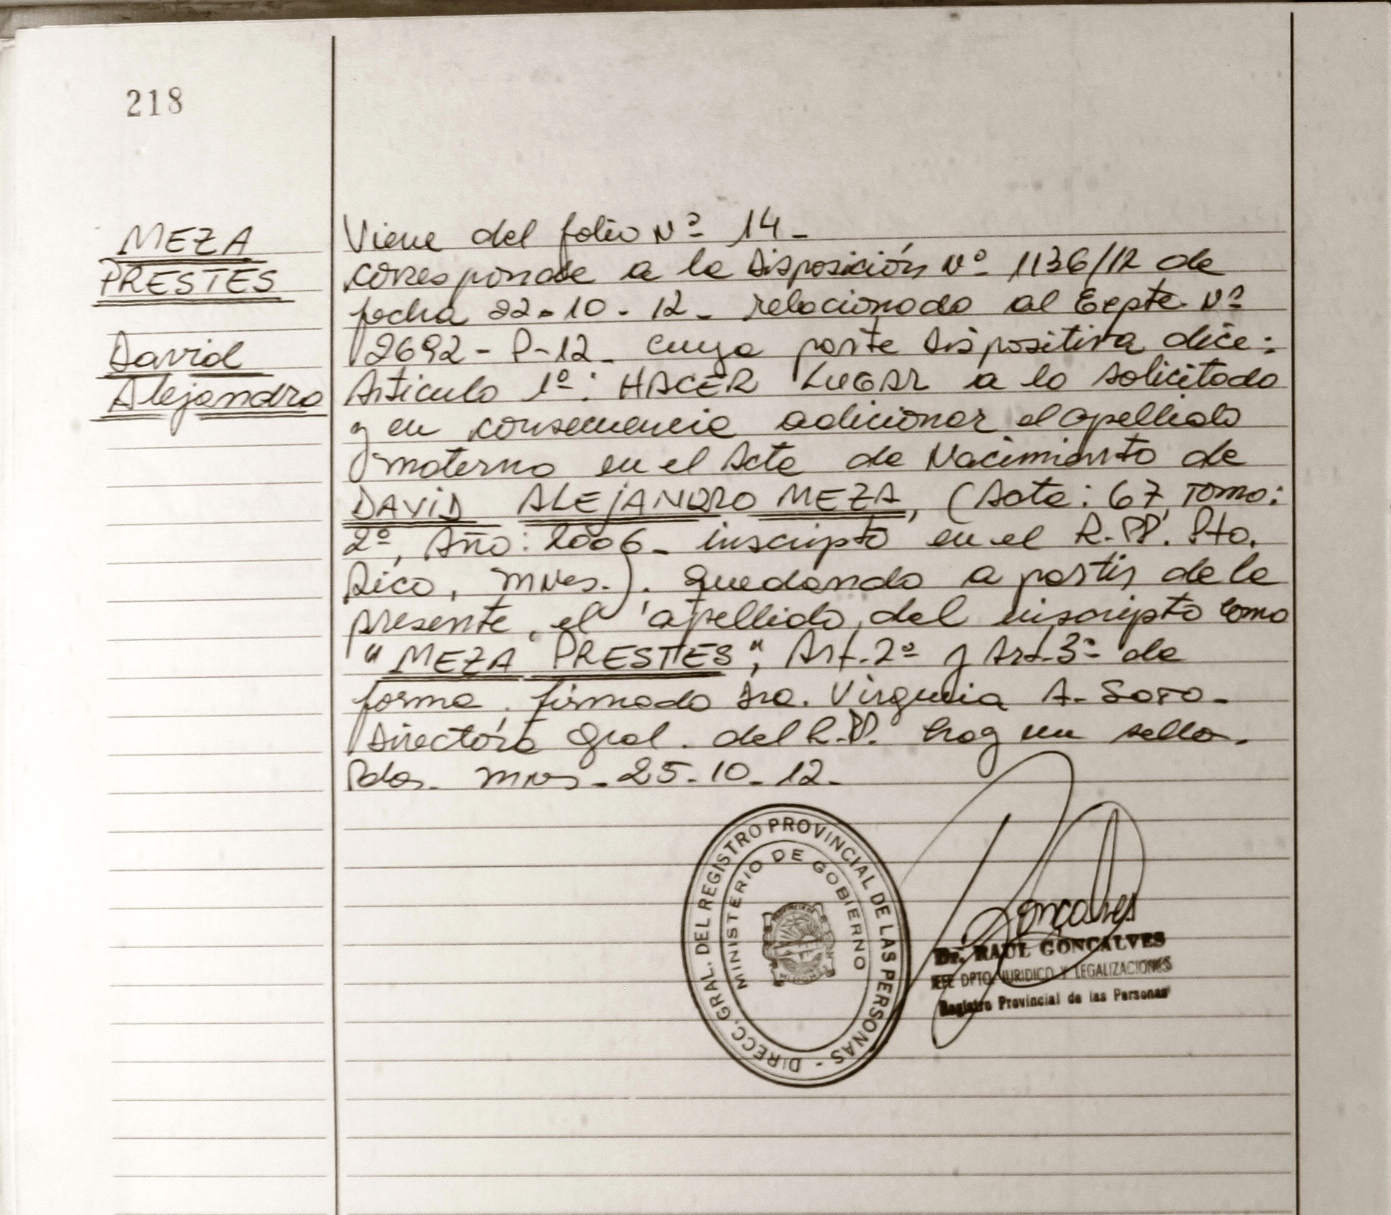 218
MEZA
PRESTES
David
Alejandro
Viene del folio Nº 14_
corresponde a la Disposición Nº 1136/12 de
fecha 22-10-12_ relacionado al Expte. Nº
2692-P-12_ cuya parte dispositiva dice:
Articulo 1º: HACER LUGAR a lo solicitado
y en consecuencia adicionar el apellido
materno en el Acta de Nacimiento de
DAVID ALEJANDRO MEZA, (Acta: 67, Tomo:
2º, Año: 2006_ inscripto en el R.PP. Pto.
Rico, Mnes.). quedando a partir de la
presente, el apellido del inscripto como
"MEZA PRESTES", Art. 2º y Art. 3º de
forma. firmado Dra. Virginia A. Soto_
Directora Gral. del R.PP. hay un sello.
Pdas. Mnes_ 25-10-12_
DIRECC. GRAL. DEL REGISTRO PROVINCIAL DE LAS PERSONAS -
MINISTERIO DE GOBIERNO
Goncalves
Dr. RAUL GONCALVES
JEFE DPTO. JURIDICO Y LEGALIZACIONES
Registro Provincial de las Personas